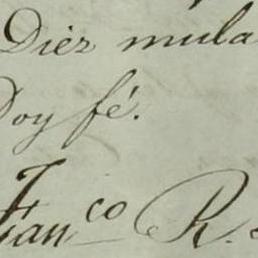 Diez mula
Doy fé.
Fran co R.